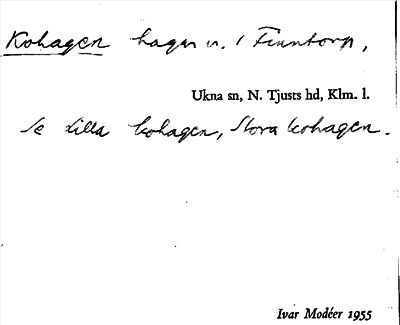 Kohagen hagar u. Finntorp,
Ukna sn, N. Tjusts hd, Klm. l.
Se Lilla kohagen, Stora kohagen.
Ivar Modéer 1955